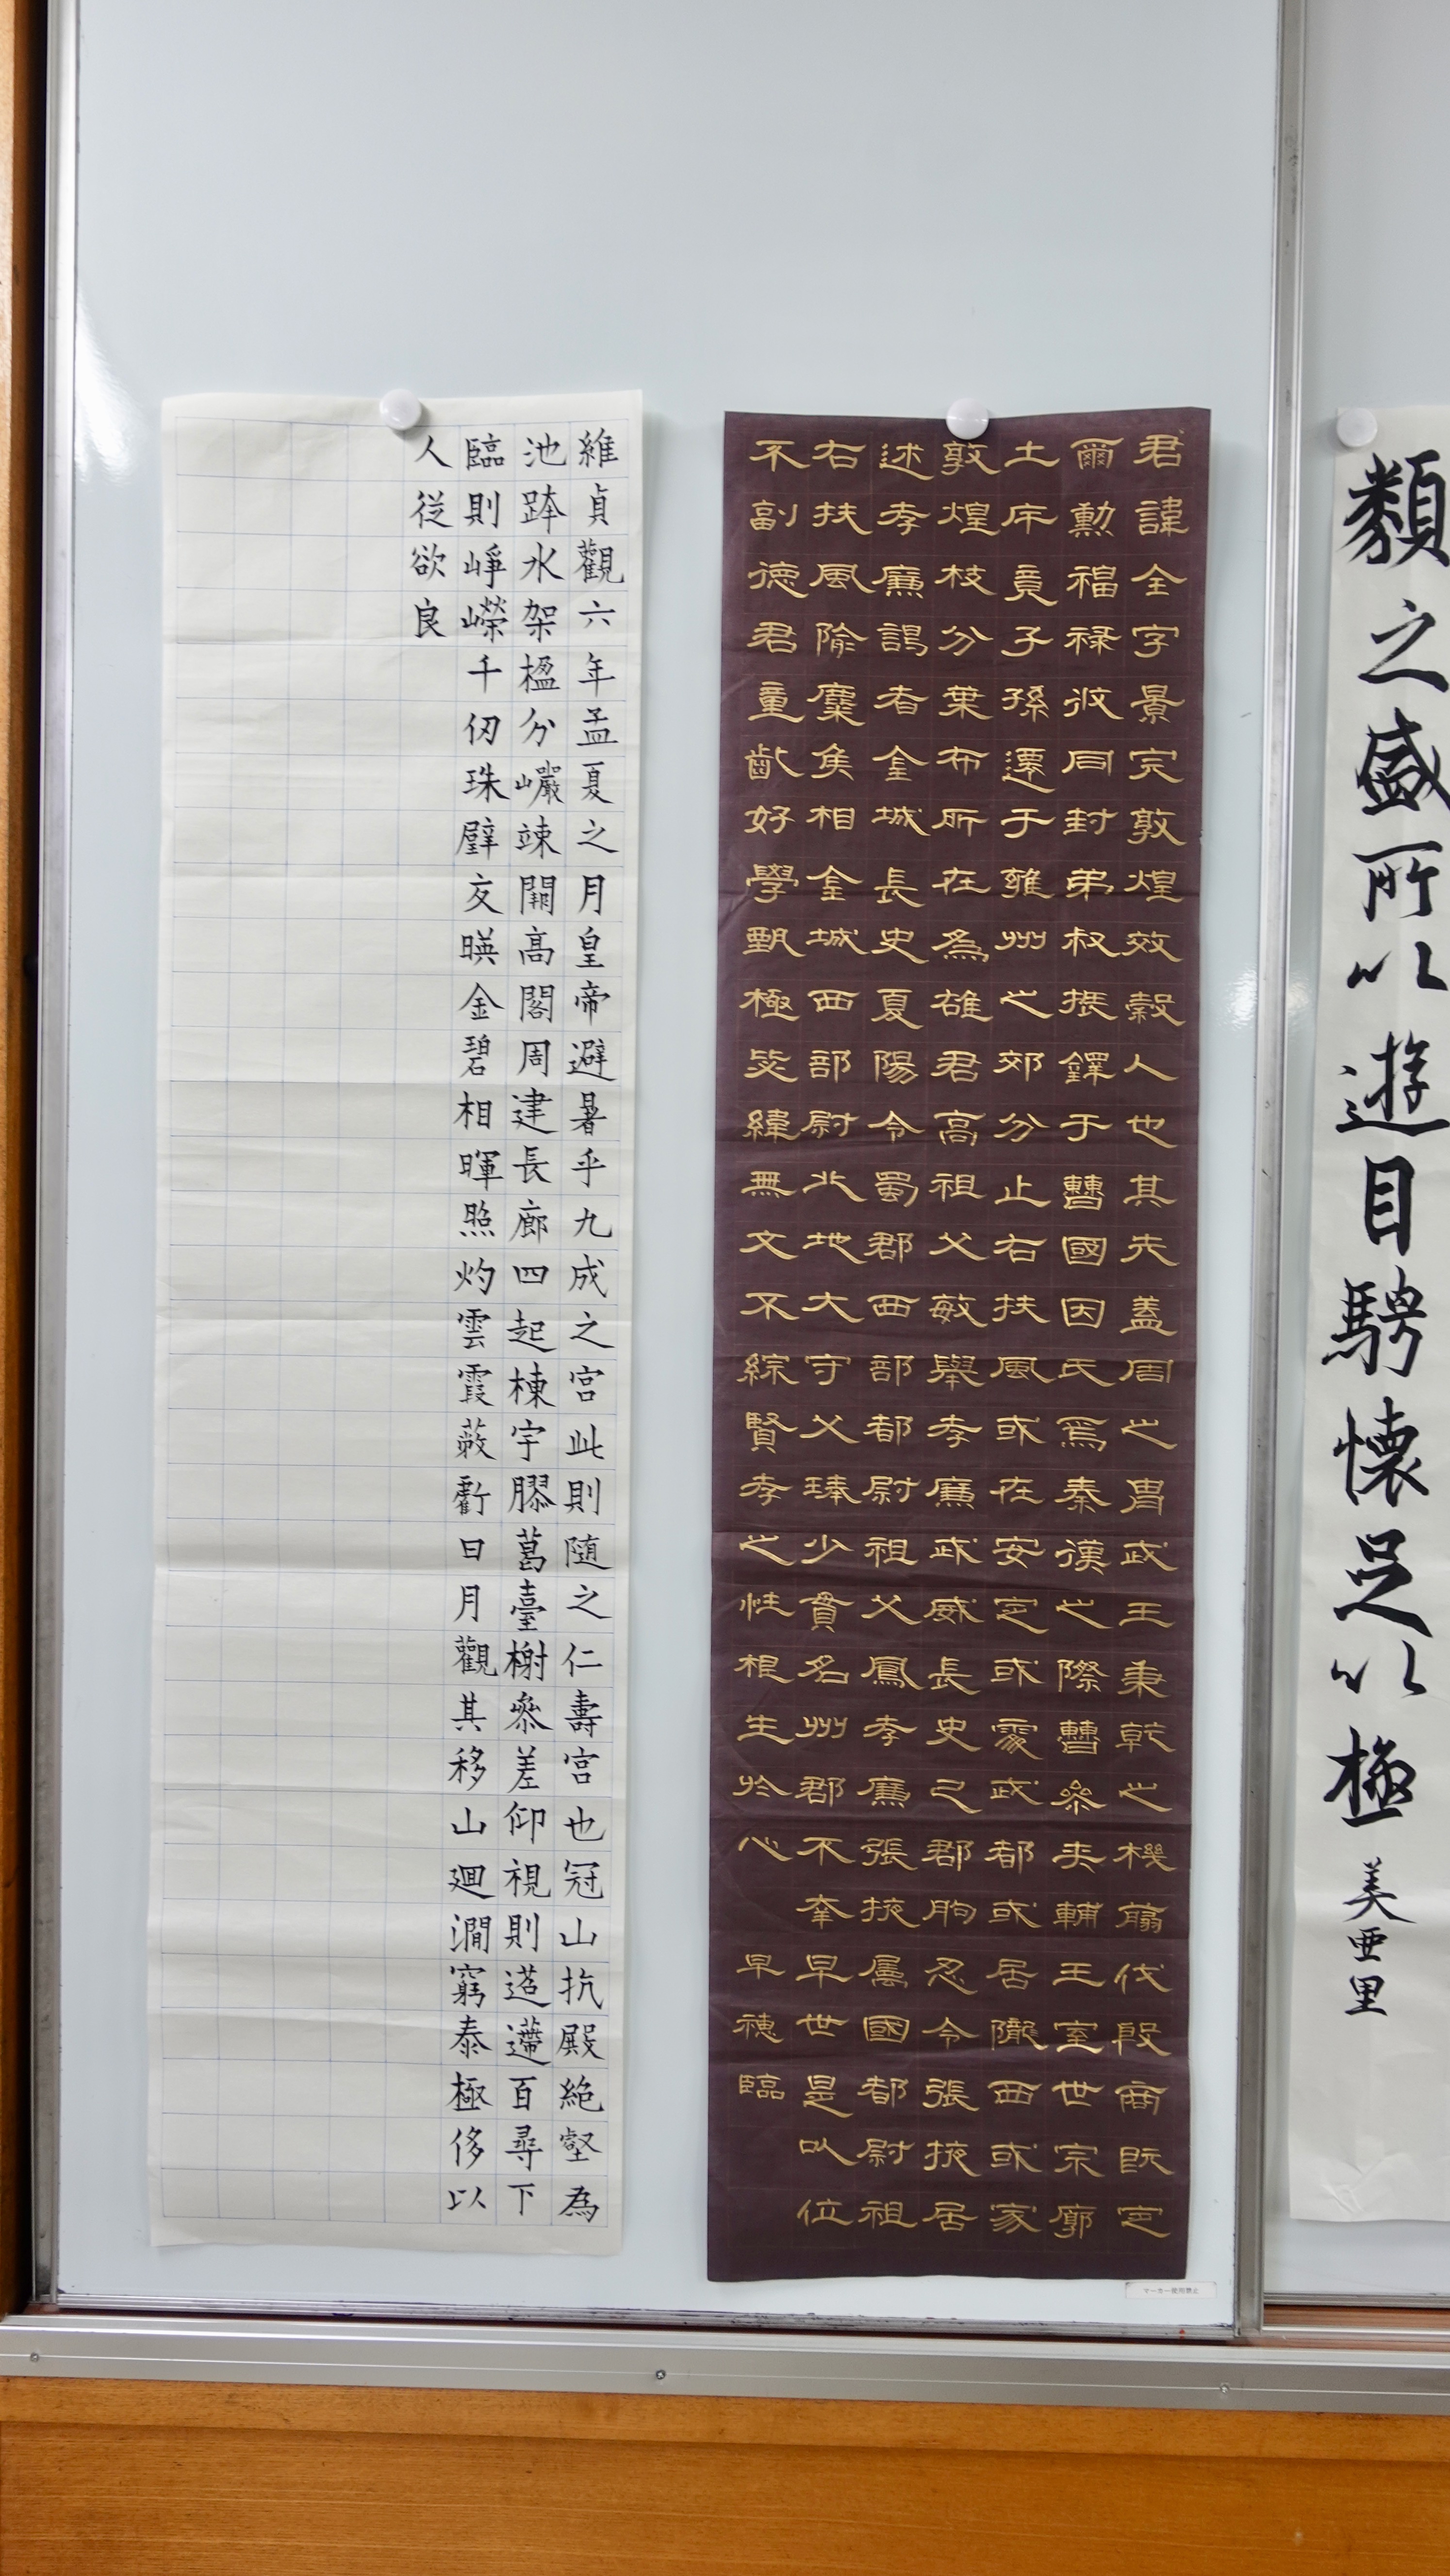 類之盛所以遊目騁懐足以極 美亜里
君諱全字景完敦煌效穀人也其先蓋周之胄武王秉乾之機翦伐殷商既定
爾勳福禄攸同封弟叔振鐸于曹國因氏焉秦漢之際曹參夾輔王室世宗廓
土斥竟子孫遷于雍州之郊分止右扶風或在安定或處武都或居隴西或家
敦煌枝分葉布所在為雄君高祖父敏舉孝廉武威長史巴郡朐忍令張掖居
述孝廉謁者金城長史夏陽令蜀郡西部都尉祖父鳳孝廉張掖屬國都尉祖
右扶風隃麋侯相金城西部都尉北地大守父琫少貫名州郡不幸早世是以位
不副德君童齔好學甄極毖緯無文不綜賢孝之性根生於心 早穂臨
維貞觀六年孟夏之月皇帝避暑乎九成之宮此則随之仁壽宮也冠山抗殿絶壑為
池跨水架楹分巖竦闕高閣周建長廊四起棟宇膠葛臺榭參差仰視則迢遰百尋下
臨則崢嶸千仞珠璧交暎金碧相暉照灼雲霞蔽虧日月觀其移山廻澗窮泰極侈以
人従欲良
マーカー使用禁止